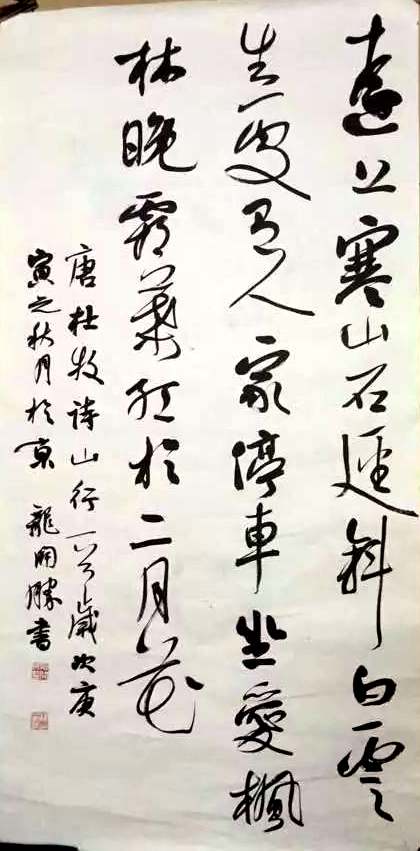 遠上寒山石徑斜白雲
生處有人家停車坐愛楓
林晚霜葉紅於二月花
唐杜牧詩山行一首歲次庚
寅之秋月於京 龍開勝書